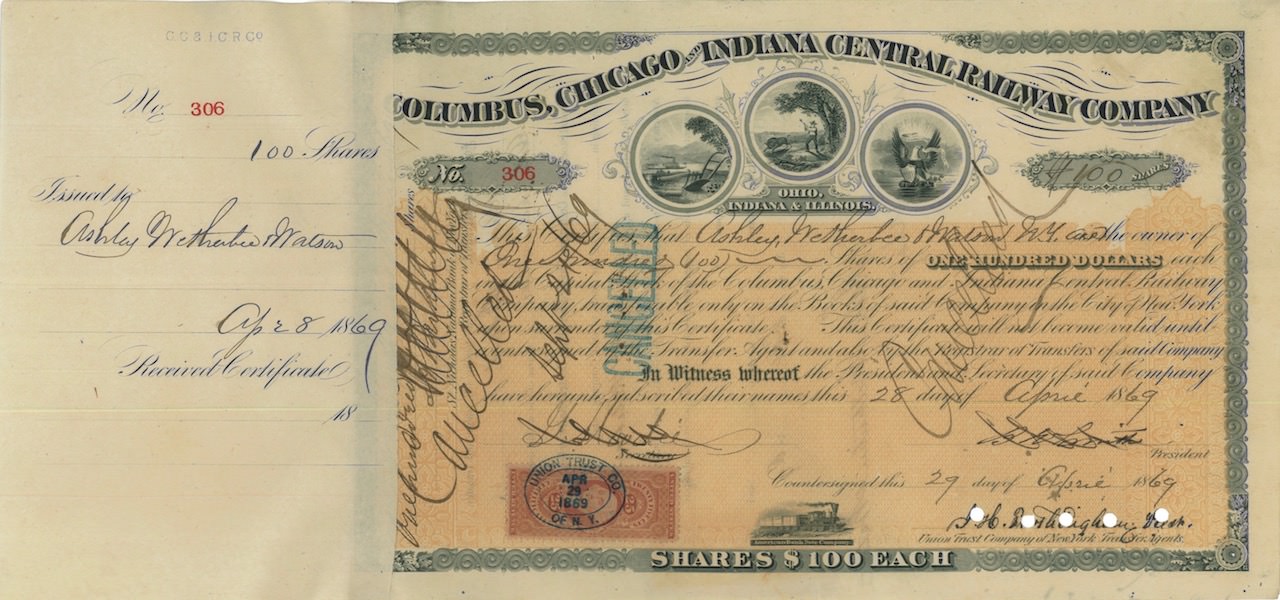 C.C. & I.C.R.Co
No. 306
100 Shares
Issued to
Ashley Wetherbee & Watson
Apr 28 1869
Received Certificate
18
COLUMBUS, CHICAGO AND INDIANA CENTRAL RAILWAY COMPANY
No. 306
OHIO,
INDIANA & ILLINOIS.
100 SHARES
This Certifies that Ashley, Wetherbee & Watson N.Y. are the owner of
One hundred (100) Shares of ONE HUNDRED DOLLARS each
in the Capital Stock of the Columbus, Chicago and Indiana Central Railway
Company, transferable only on the Books of said company in the City of New York
upon surrender of this Certificate. This Certificate will not become valid until
countersigned by the Transfer Agent and also by the Registrar of Transfers of said Company
In Witness whereof the President and Secretary of said Company
have hereunto subscribed their names this 28 day of April 1869
Secretary
President
Countersigned this 29 day of April 1869
Union Trust Company of New York Transfer Agents.
CANCELLED
Cancelled
Cancelled
One hundred
Shares
UNION TRUST CO
APR
29
1869
OF N.Y.
American Bank Note Company.
SHARES $100 EACH